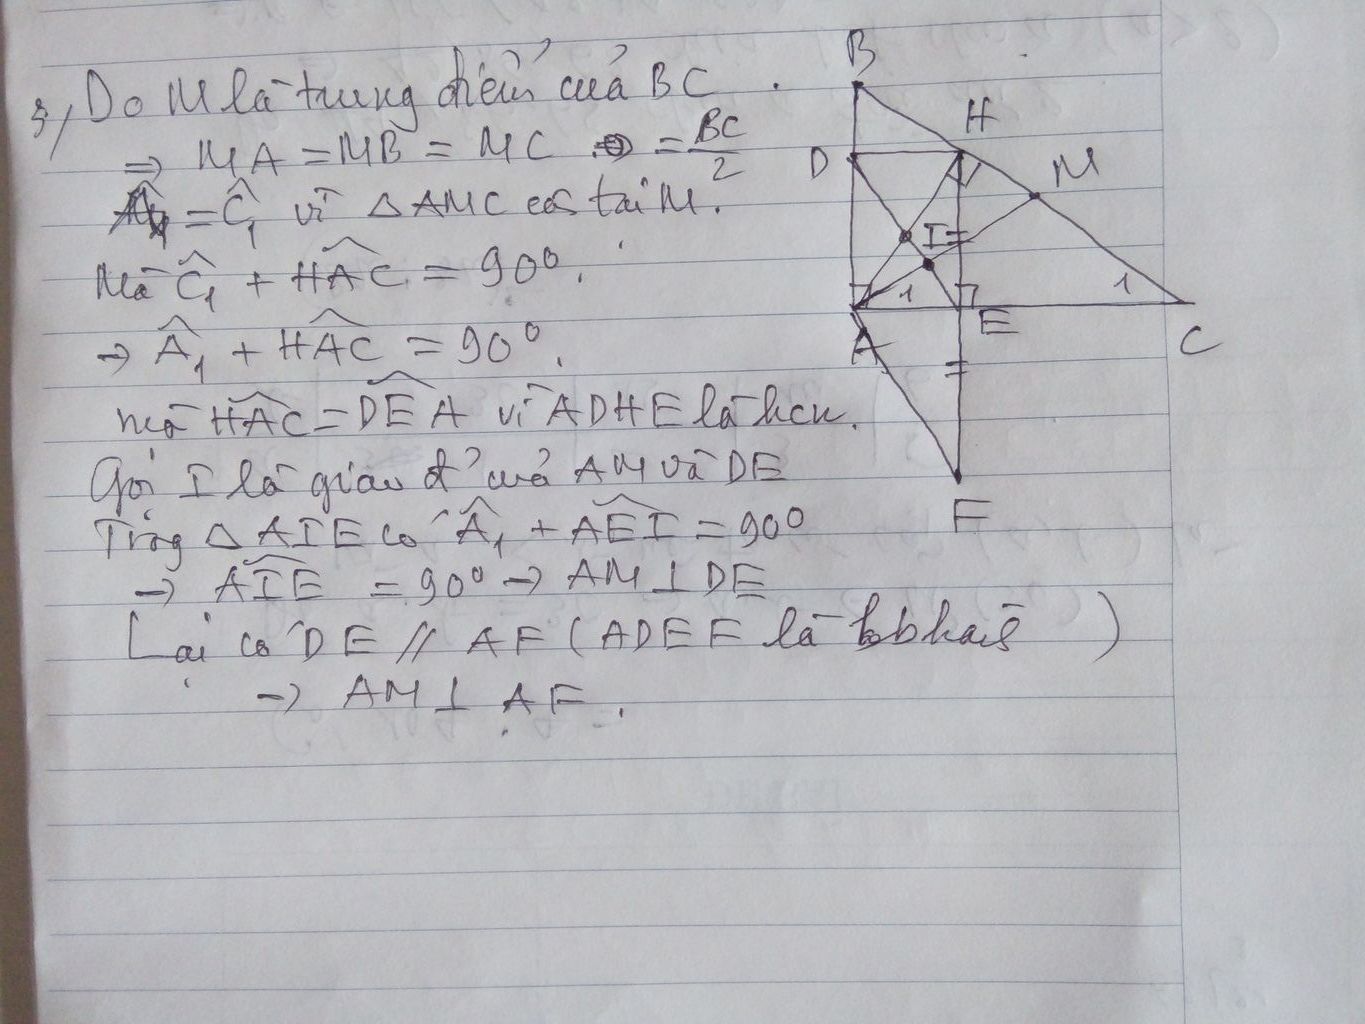 3, Do M là trung điểm của BC.
⇒ MA = MB = MC = BC/2
Â₁ = Ĉ₁ vì △AMC cân tại M.
Mà Ĉ₁ + HÂC = 90°.
→ Â₁ + HÂC = 90°.
mà HÂC = DÊA vì ADHE là hcn.
Gọi I là giao đ' của AM và DE
Trog △AIE có Â₁ + AÊI = 90°
→ AÎE = 90° → AM ⊥ DE
Lại có DE // AF (ADEF là hbhaĩ)
→ AM ⊥ AF.
B
H
D
M
I
1
1
E
A
C
F